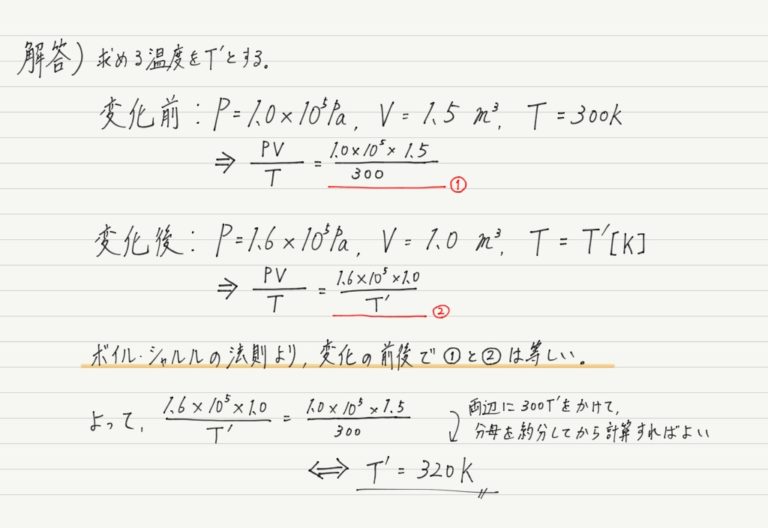 解答) 求める温度をT'とする。
変化前：P=1.0×10⁵Pa, V=1.5 m³, T=300K
⇒ PV/T = 1.0×10⁵×1.5/300 ①
変化後：P=1.6×10⁵Pa, V=1.0 m³, T=T'[K]
⇒ PV/T = 1.6×10⁵×1.0/T' ②
ボイル・シャルルの法則より, 変化の前後で①と②は等しい。
よって, 1.6×10⁵×1.0/T' = 1.0×10⁵×1.5/300
両辺に300T'をかけて,
分母を約分してから計算すればよい
⟺ T'=320K